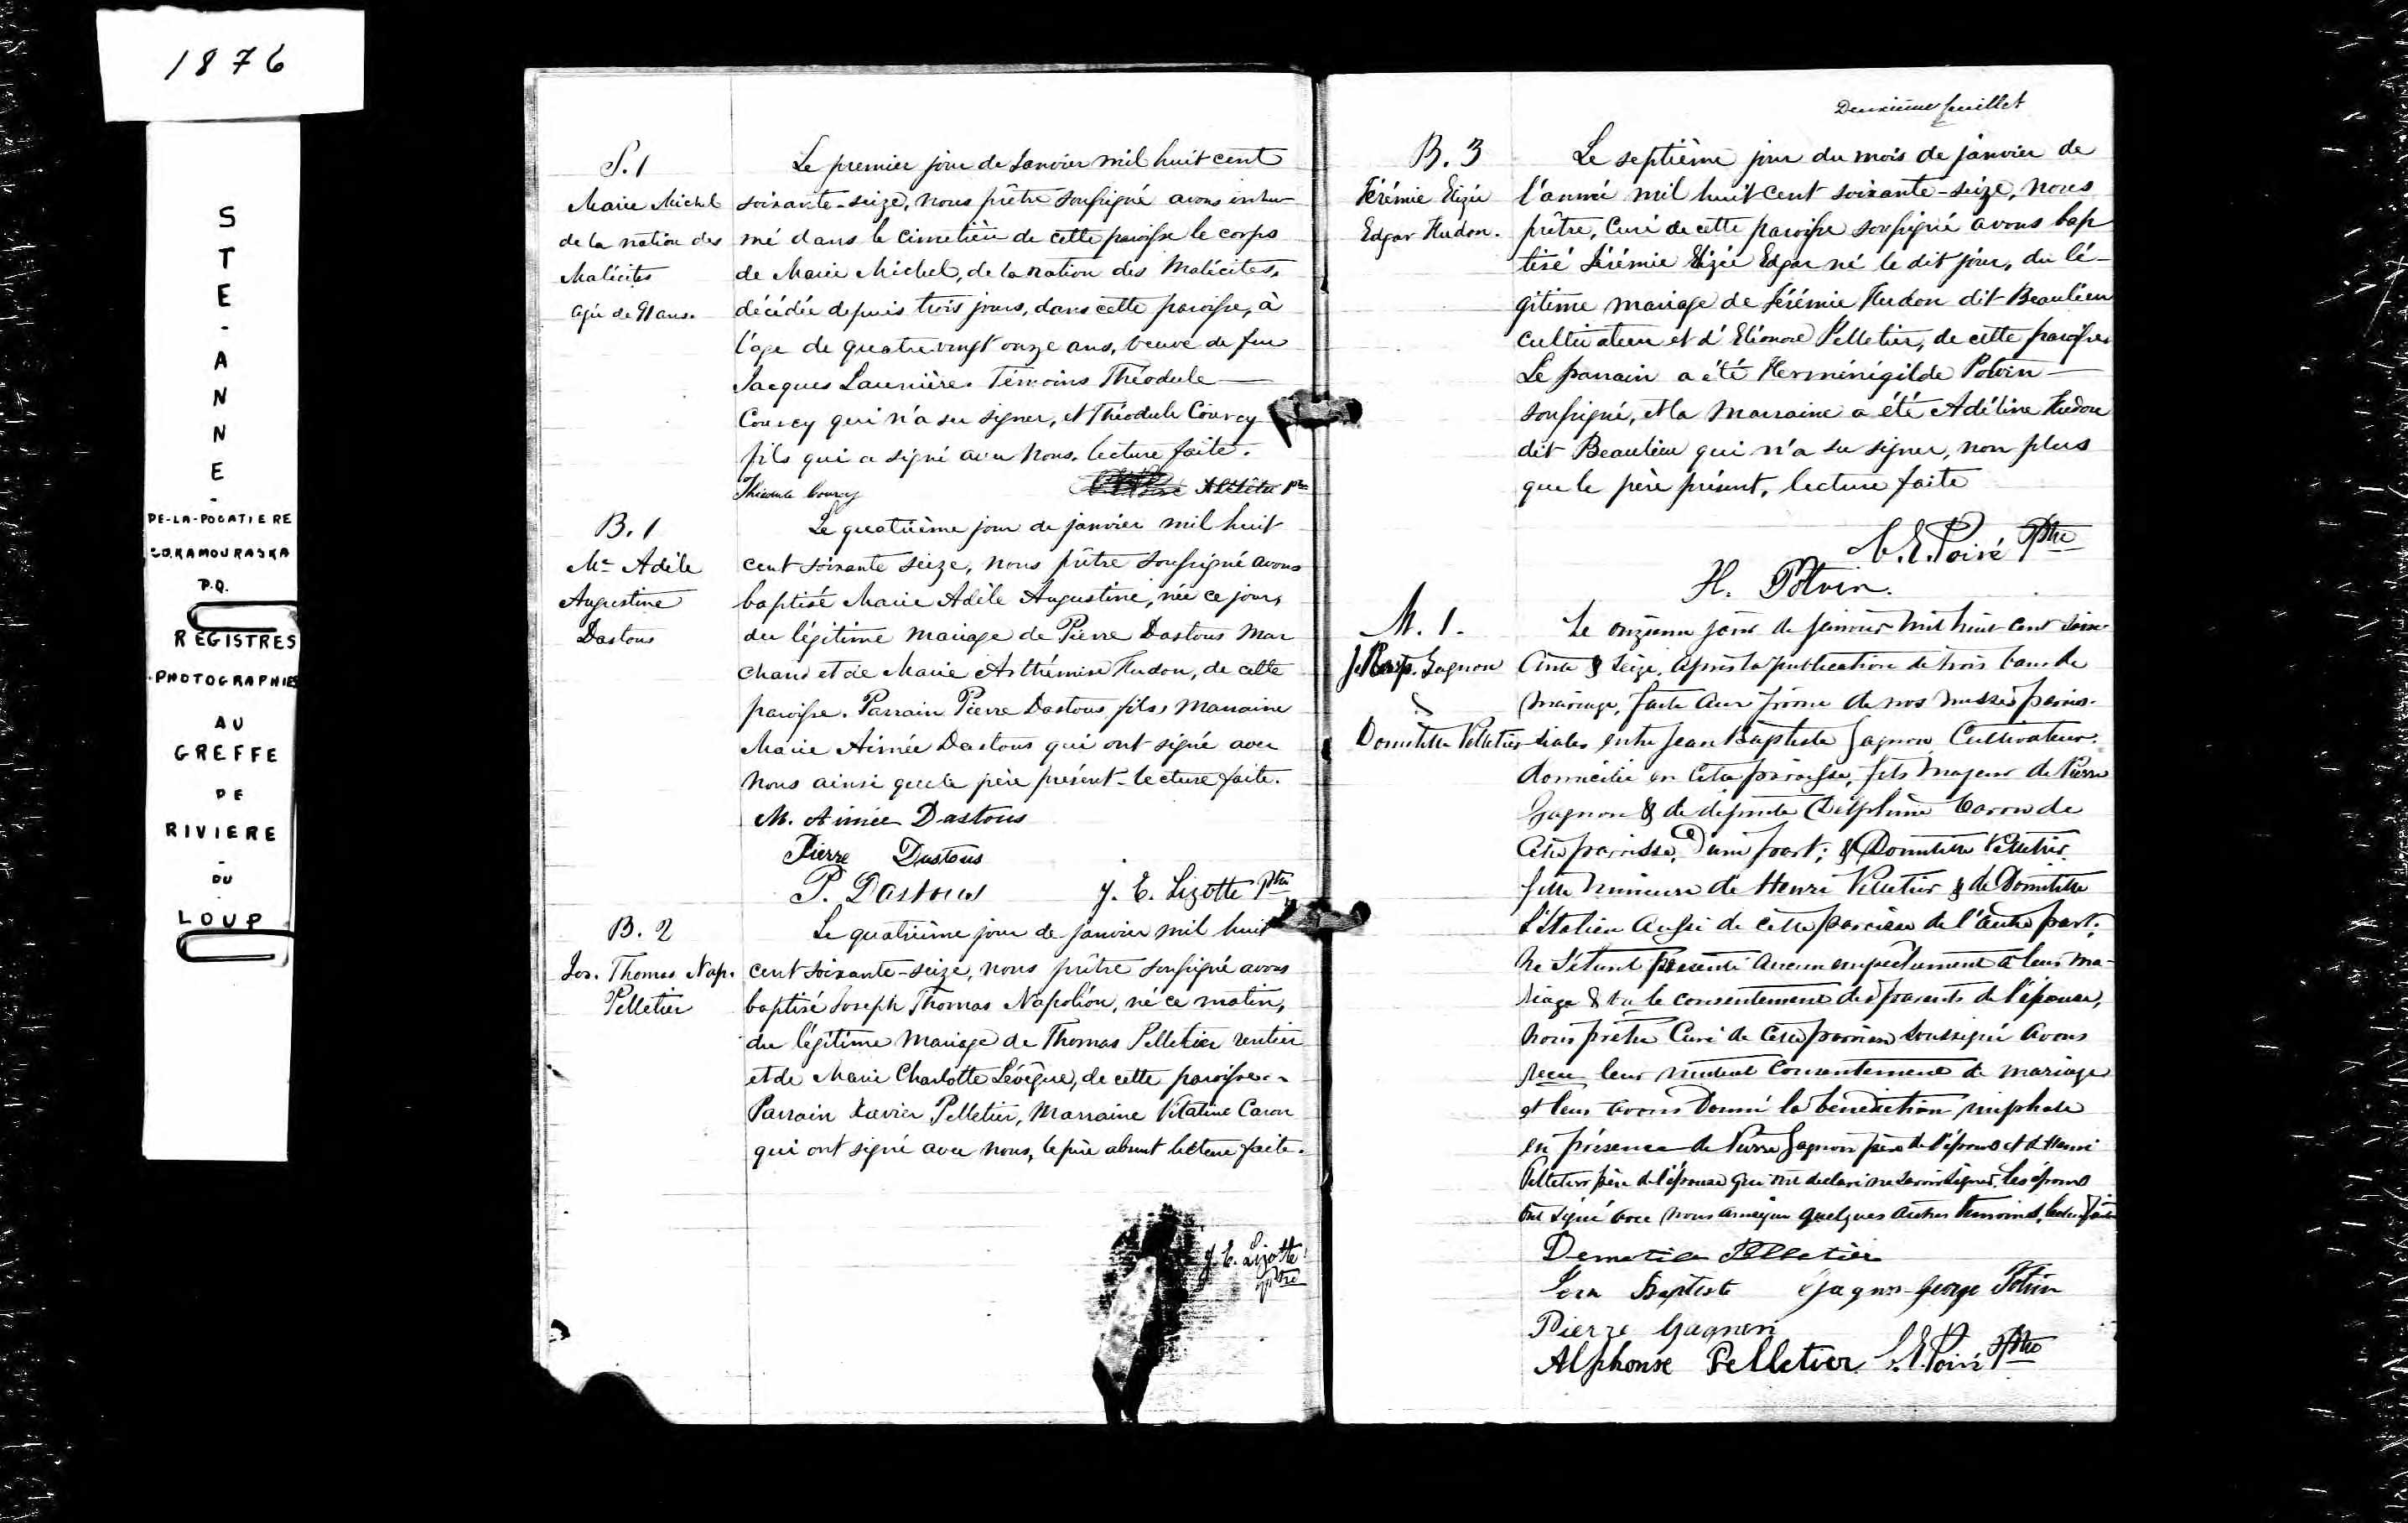 1876
STE-ANNE-
DE-LA-POCATIERE
CO.KAMOURASKA
P.Q.
REGISTRES
PHOTOGRAPHIES
AU
GREFFE
DE
RIVIERE
-
DU
LOUP
S. 1
Marie Michel
de la nation des
Malécites
agée de 91 ans.
Le premier jour de Janvier mil huit cent
soixante-seize, nous prêtre soussigné avons inhu-
mé dans le cimetière de cette paroisse le corps
de Marie Michel, de la nation des Malécites,
décédée depuis trois jours, dans cette paroisse, à
l'age de quatre vingt onze ans, veuve de feu
Jacques Launière. Témoins Théodule
Courcy qui n'a su signer, et Théodule Courcy
fils qui a signé avec nous, lecture faite.
Théodule Courcy
B. 1
Mie Adèle
Augustine
Dastous
Le quatrième jour de janvier mil huit
cent soixante seize, nous prêtre soussigné avons
baptisé Marie Adèle Augustine, née ce jour,
du légitime mariage de Pierre Dastous mar
chand et de Marie Arthémise Hudon, de cette
paroisse. Parrain Pierre Dastous fils, marraine
Marie Aimée Dastous qui ont signé avec
nous ainsi que le père présent - lecture faite.
M. Aimée Dastous
Pierre Dastous
P. Dastous J. E. Lizotte Ptre
B. 2
Jos. Thomas Nap.
Pelletier
Le quatrième jour de janvier mil huit
cent soixante-seize, nous prêtre soussigné avons
baptisé Joseph Thomas Napoléon, né ce matin,
du légitime mariage de Thomas Pelletier rentier
et de Marie Charlotte Lévêque, de cette paroisse.
Parrain Xavier Pelletier, Marraine Vitaline Caron
qui ont signé avec nous, le père absent lecture faite.
J. E. Lizotte
Ptre
Deuxième feuillet
B. 3
Jérémie Elzée
Edgar Hudon.
Le septième jour du mois de janvier de
l'année mil huit cent soixante-seize, nous
prêtre, Curé de cette paroisse soussigné avons bap
tisé Jérémie Elzée Edgar né le dit jour, du lé-
gitime mariage de Jérémie Hudon dit Beaulieu
cultivateur et d'Eléonore Pelletier, de cette paroisse
Le parrain a été Herménégilde Potvin
soussigné, et la marraine a été Adéline Hudon
dit Beaulieu qui n'a su signer, non plus
que le père présent, lecture faite
C. E. Poiré Ptre
H. Potvin.
M. 1.
J. Bapt. Gagnon
&
Domitille Pelletier
Le onzieme jour de janvier mil huit cent soix-
ante & seize, après la publication de trois bans de
mariage, faite aux prône de nos messes parois-
siales entre Jean Baptiste Gagnon Cultivateur
domicilié en cette paroisse, fils majeur de Pierre
Gagnon & de defunte Delphine Caron de
cette paroisse, d'une part; & Domitille Pelletier
fille mineure de Henri Pelletier & de Domitille
l'Italien aussi de cette paroisse de l'autre part;
ne s'étant présenté aucun empêchement à leur ma-
riage & vu le consentement des parents de l'épouse,
nous prêtre Curé de cette paroisse soussigné avons
reçu leur mutuel consentement de mariage
et leur avons donné la bénédiction nuptiale
en présence de Pierre Gagnon père de l'époux et d'Henri
Pelletier père de l'épouse qui ont déclaré ne savoir signer. Les époux
ont signé avec nous ainsi que quelques autres témoins, lecture faite
Demetile Pelletier
Jean Baptiste Gagnon George Potvin
Pierre Gagnon
Alphonse Pelletier C. E. Poiré Ptre